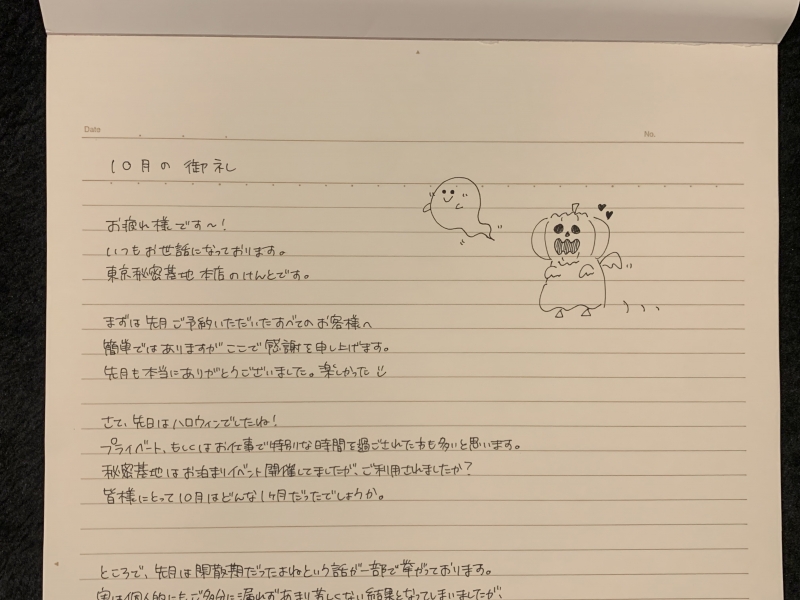 Date
No.
10月の御礼
お疲れ様です〜!
いつもお世話になっております。
東京秘密基地本店のけんとです。
まずは先月ご予約いただいたすべてのお客様へ
簡単ではありますがここで感謝を申し上げます。
先月も本当にありがとうございました。楽しかった
さて、先日はハロウィンでしたね!
プライベート、もしくはお仕事で特別な時間を過ごされた方も多いと思います。
秘密基地はお泊まりイベント開催してましたが、ご利用されましたか?
皆様にとって10月はどんな1ヶ月だったでしょうか。
ところで、先月は閑散期だったよねという話が一部で挙がっております。
実は個人的にも、ご多分に漏れずあまり芳しくない結果となってしまいましたが、